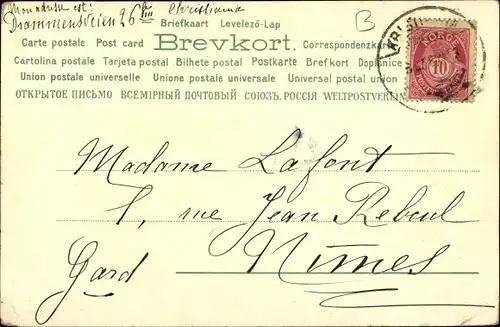 Mon adresse est:
Drammensveien 26 III Christiania
B
Briefkaart Levelező-Lap
Carte postale Post card Brevkort. Correspondenzkarte
Cartolina postale Tarjeta postal Bilhete postal Postkarte Brefkort Dopisnice
Union postale universelle Unione postale universale Universal postal union
ОТКРЫТОЕ ПИСЬМО ВСЕМІРНЫЙ ПОЧТОВЫЙ СОЮЗЪ. РОССІЯ WELTPOSTVEREIN
NORGE
10
Madame Lafont
1, rue Jean Reboul
Nîmes
Gard